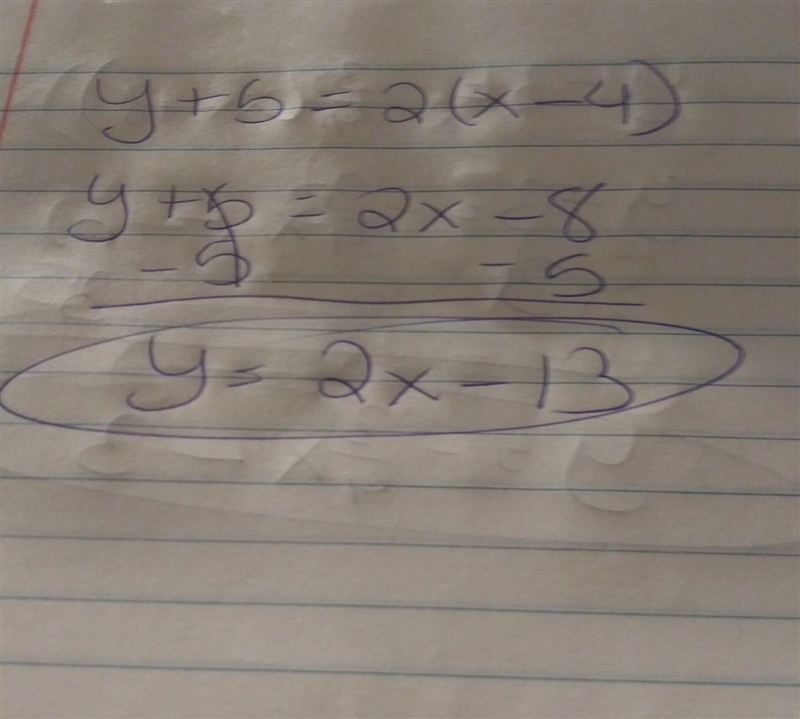 y + 5 = 2(x - 4)
y + 5 = 2x - 8
- 5 - 5
y = 2x - 13